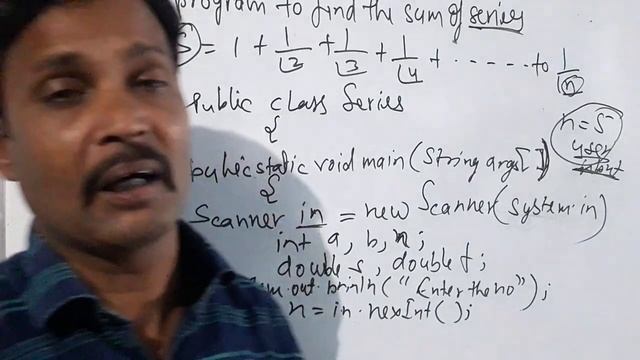 program to find the sum of series
S) = 1 + 1/⌊2 + 1/⌊3 + 1/⌊4 + ...... to 1/⌊n
public class Series
{
n = 5
user
public static void main(String args[])
{
Scanner in = new Scanner(System.in)
int a, b, n;
double s, double f;
m.out.println("Enter the no");
n = in.nexInt();